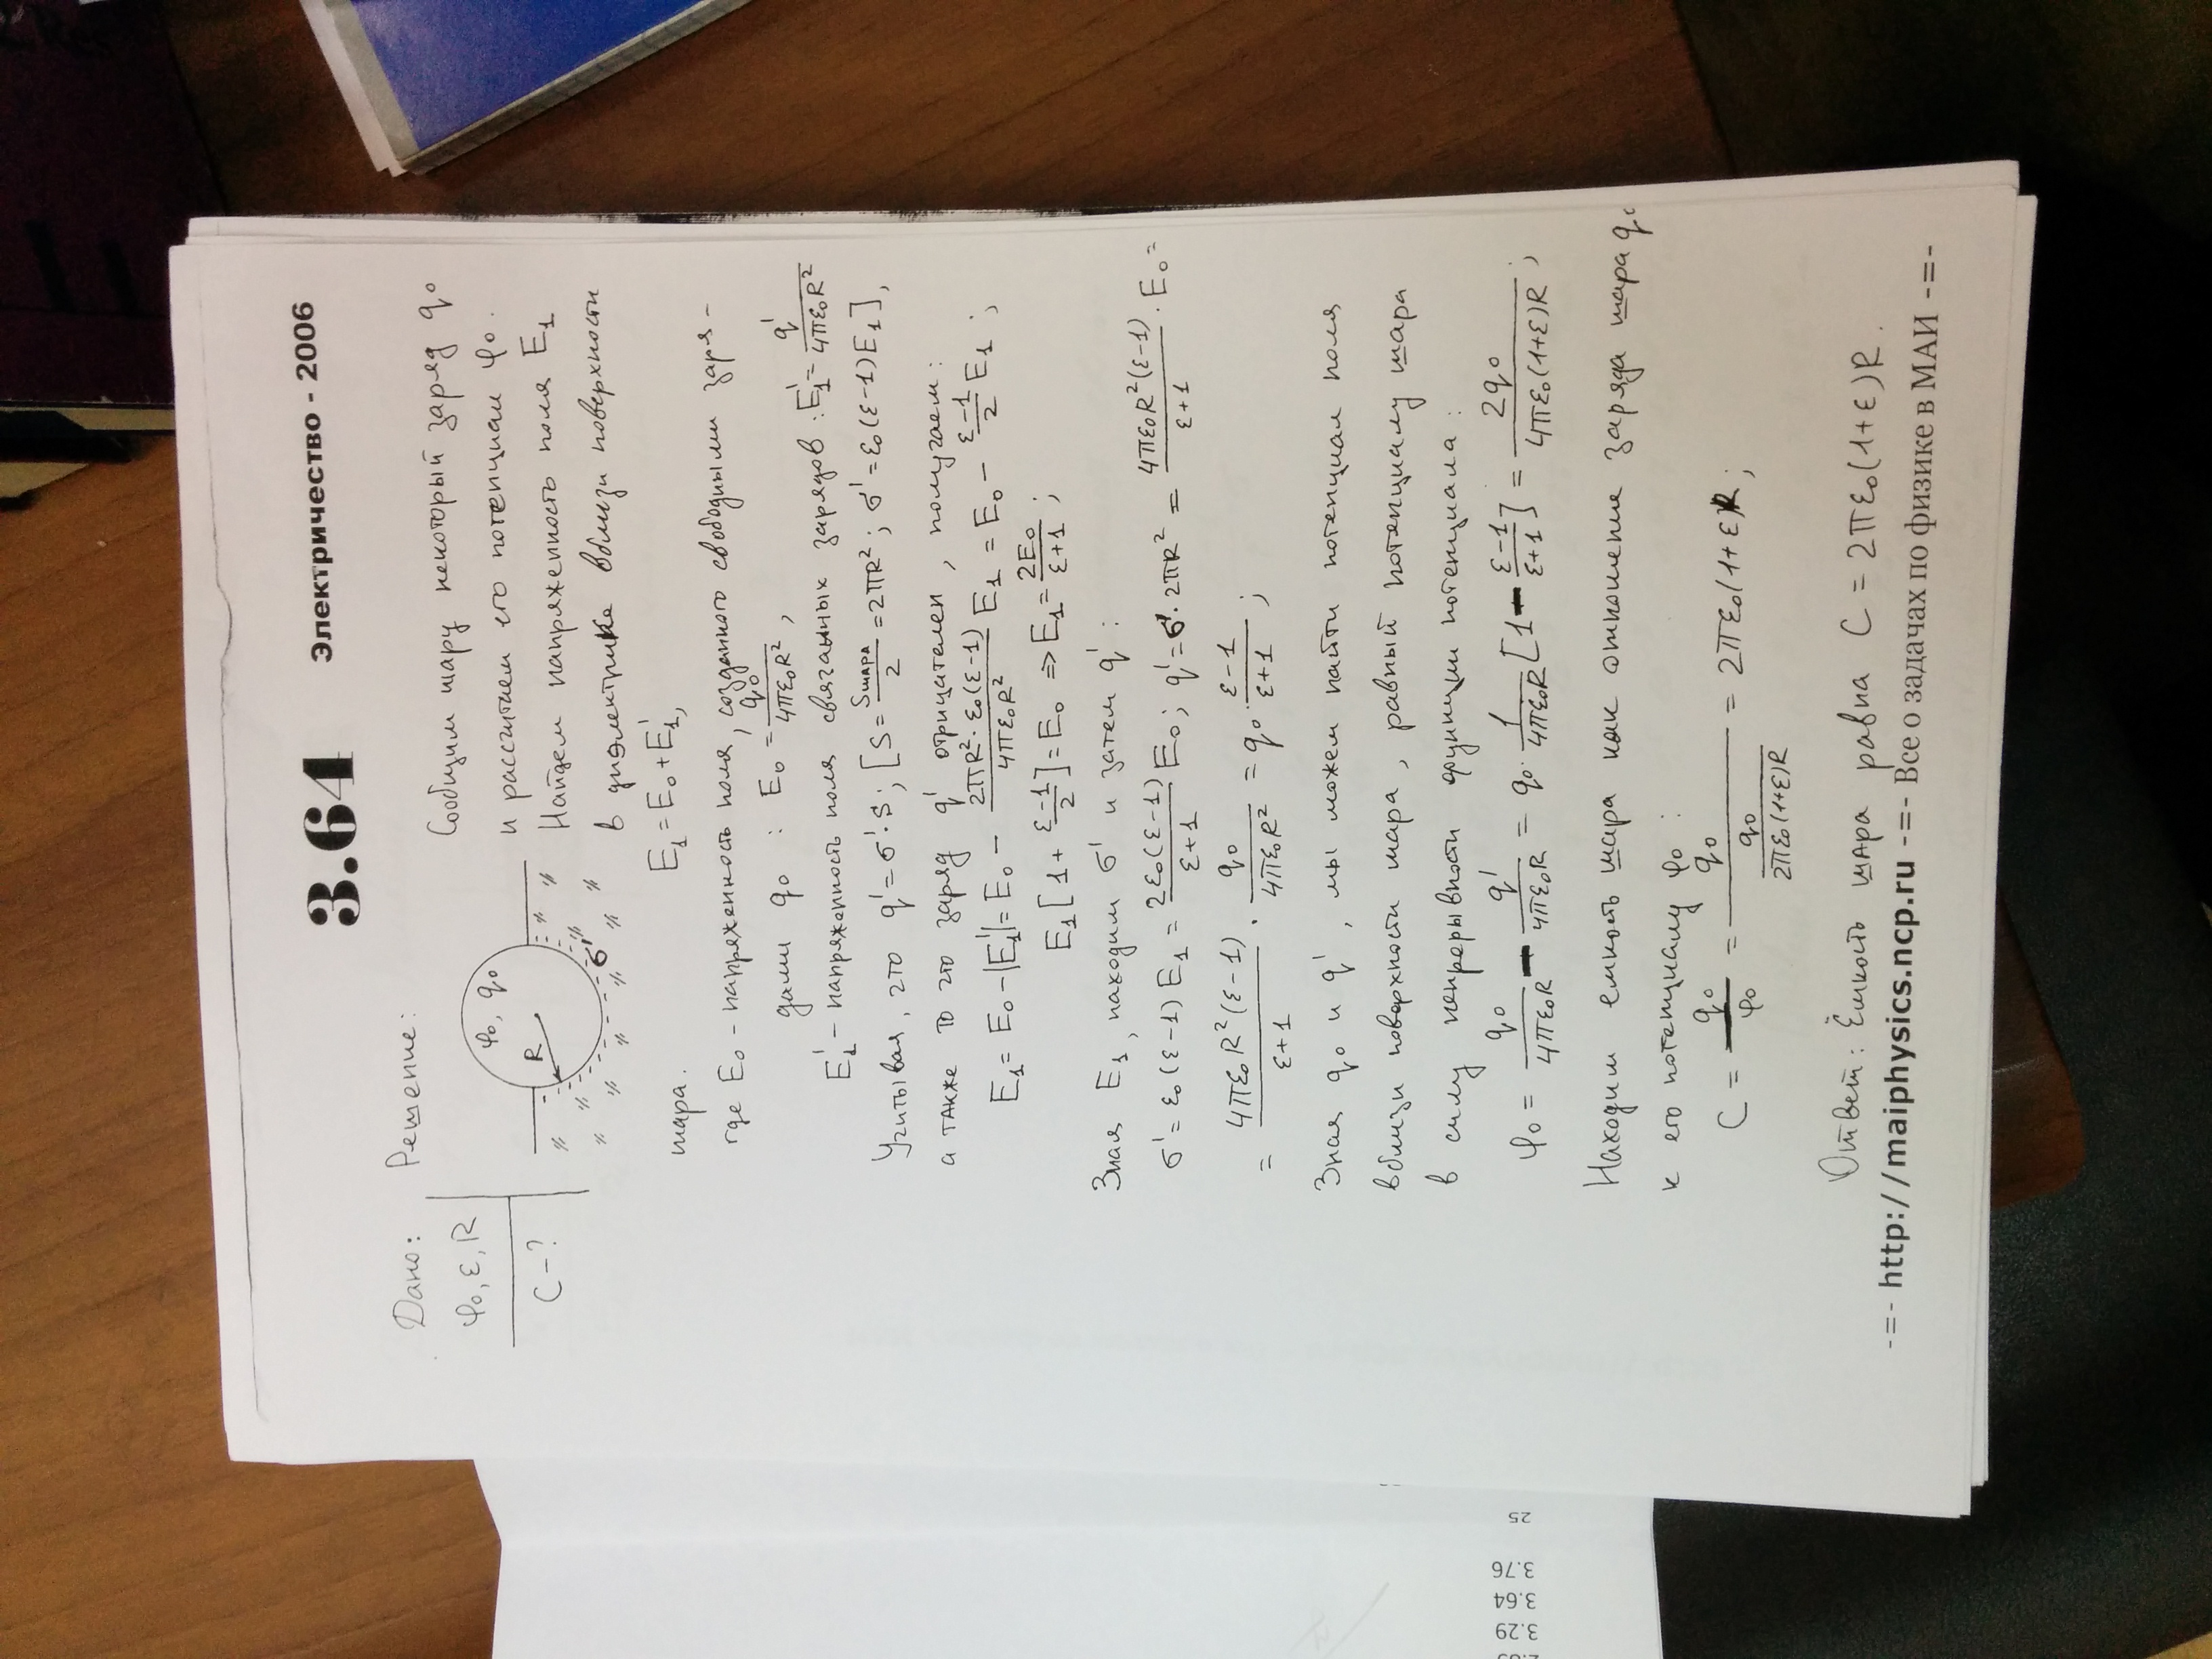 3.64 Электричество - 2006
Дано: Решение:
φ₀, ε, R
C - ?
φ₀, q₀
R
σ'
Сообщим шару некоторый заряд q₀
и рассчитаем его потенциал φ₀.
Найдем напряженность поля E₁
в диэлектрике вблизи поверхности
шара. E₁ = E₀ + E₁',
где E₀ - напряженность поля, созданного свободными заря-
дами q₀ : E₀ = q₀/4πε₀R²,
E₁' - напряженность поля связанных зарядов : E₁' = q'/4πε₀R²
Учитывая, что q' = σ'·S; [S = Sшара/2 = 2πR²; σ' = ε₀(ε-1)E₁],
а также то что заряд q' отрицателен, получаем:
E₁ = E₀ - |E₁'| = E₀ - 2πR²·ε₀(ε-1)/4πε₀R² E₁ = E₀ - ε-1/2 E₁ ;
E₁[1 + ε-1/2] = E₀ => E₁ = 2E₀/ε+1 ;
Зная E₁, находим σ' и затем q' :
σ' = ε₀(ε-1)E₁ = 2ε₀(ε-1)/ε+1 E₀; q' = σ'·2πR² = 4πε₀R²(ε-1)/ε+1 · E₀ =
= 4πε₀R²(ε-1)/ε+1 · q₀/4πε₀R² = q₀·ε-1/ε+1 ;
Зная q₀ и q', мы можем найти потенциал поля
вблизи поверхности шара, равный потенциалу шара
в силу непрерывности функции потенциала :
φ₀ = q₀/4πε₀R - q'/4πε₀R = q₀·1/4πε₀R [1 - ε-1/ε+1] = 2q₀/4πε₀(1+ε)R ;
Находим емкость шара как отношение заряда шара q₀
к его потенциалу φ₀ :
C = q₀/φ₀ = q₀/(q₀/2πε₀(1+ε)R) = 2πε₀(1+ε)R ;
Ответ: Ёмкость шара равна C = 2πε₀(1+ε)R.
-=- http://maiphysics.ncp.ru -=- Все о задачах по физике в МАИ -=-
3.29
3.64
3.76
25